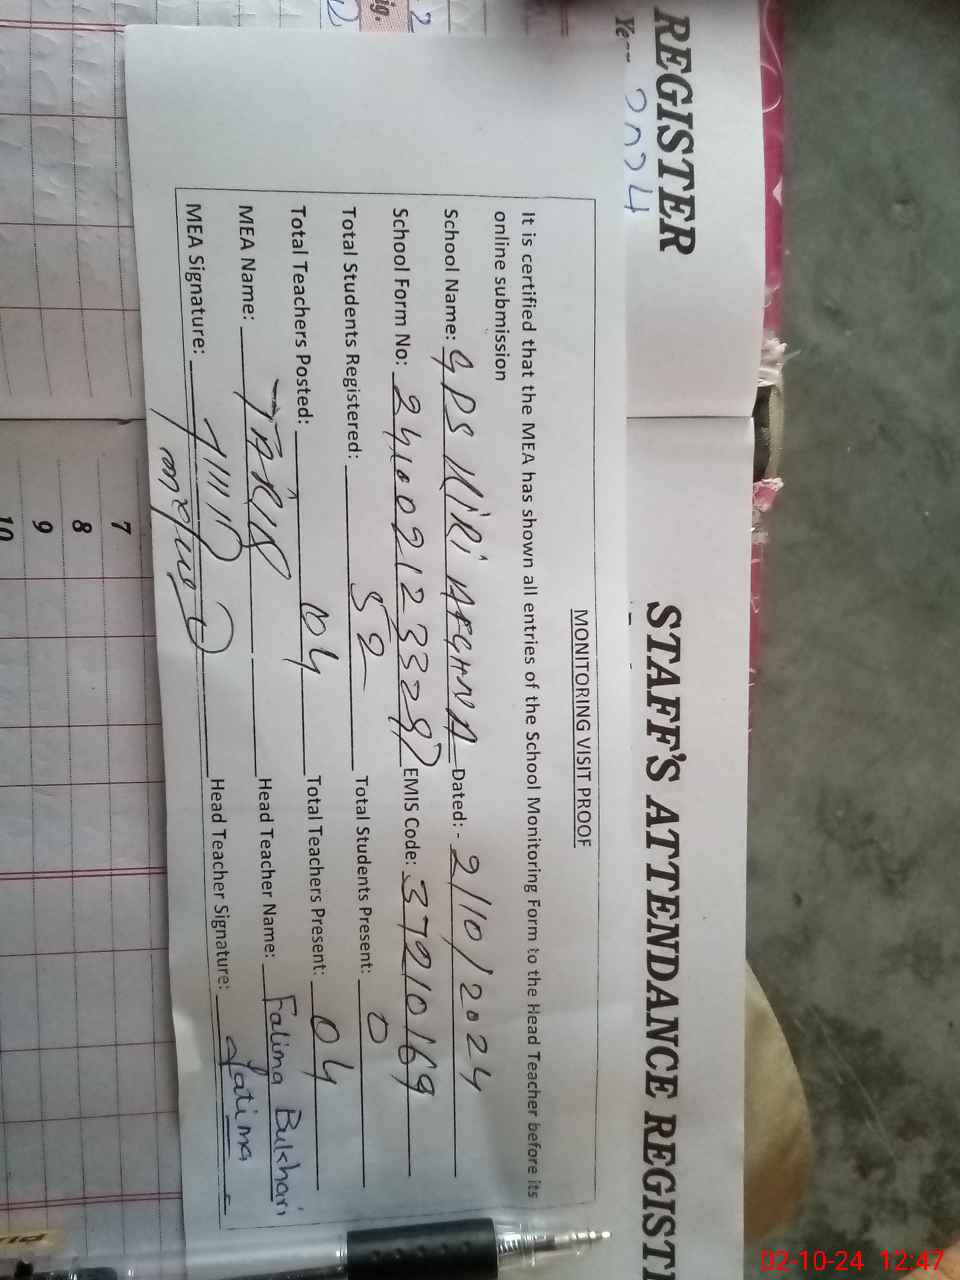 REGISTER
2024
STAFF'S ATTENDANCE REGIST
MONITORING VISIT PROOF
It is certified that the MEA has shown all entries of the School Monitoring Form to the Head Teacher before its
online submission
School Name: GPS KIRI AFGHNA Dated: - 2/10/2024
School Form No: EMIS Code: 37210169
Total Students Registered: 52 Total Students Present: 0
Total Teachers Posted: 04 Total Teachers Present: 04
MEA Name: Head Teacher Name: Fatima Bukhari
MEA Signature: Head Teacher Signature: Fatima
7
8
9
10
02-10-24 12:47